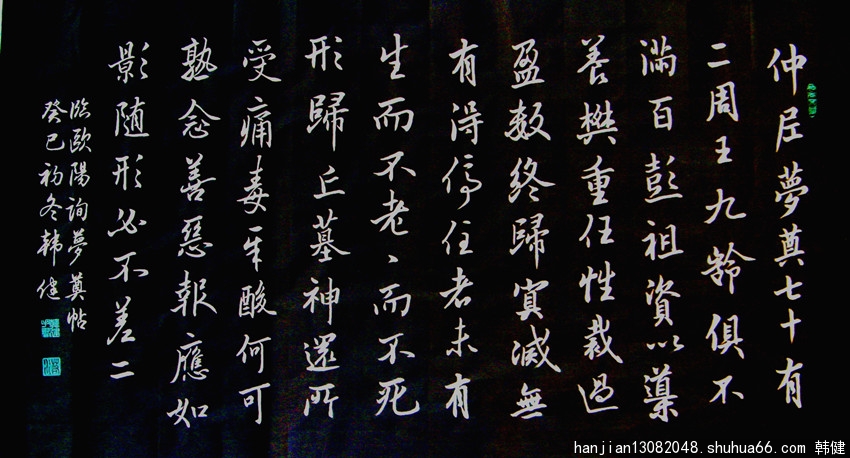 仲尼夢奠七十有
二周王九齡俱不
滿百彭祖資以導
養樊重任性裁過
盈數終歸冥滅無
有得停住者未有
生而不老、而不死
形歸丘墓神還所
受痛毒辛酸何可
熟念善惡報應如
影随形必不差二
臨歐陽詢夢奠帖
癸巳初冬韩健
hanjian13082048.shuhua66.com 韩健